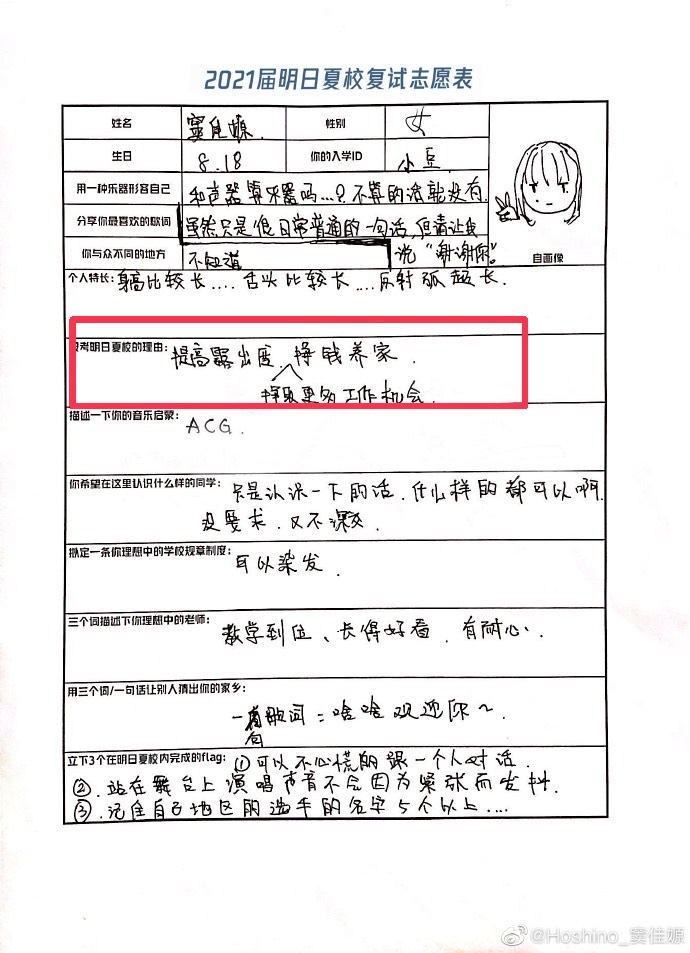 2021届明日夏校复试志愿表
姓名 窦佳嫄. 性别 女
生日 8.18 你的入学ID 小豆
用一种乐器形容自己 和声器算乐器吗...? 不算的话就没有.
分享你最喜欢的歌词 虽然只是很日常普通的一句话, 但请让我
说 "谢谢你"。
你与众不同的地方 不知道
自画像
个人特长: 身高比较长.... 舌头比较长.... 反射弧超长.
报考明日夏校的理由: 提高露出度, 挣钱养家.
挣取更多工作机会.
描述一下你的音乐启蒙: ACG.
你希望在这里认识什么样的同学: 只是认识一下的话, 什么样的都可以啊.
没要求, 又不深交.
拟定一条你理想中的学校规章制度: 可以染发.
三个词描述下你理想中的老师: 教学到位、长得好看, 有耐心.
用三个词/一句话让别人猜出你的家乡:
一句歌词: 啥啥欢迎你~
立下3个在明日夏校内完成的flag: ①可以不心慌的跟一个人对话.
②. 站在舞台上演唱声音不会因为紧张而发抖.
③. 记住自己地区的选手的名字5个以上....
@Hoshino_窦佳嫄